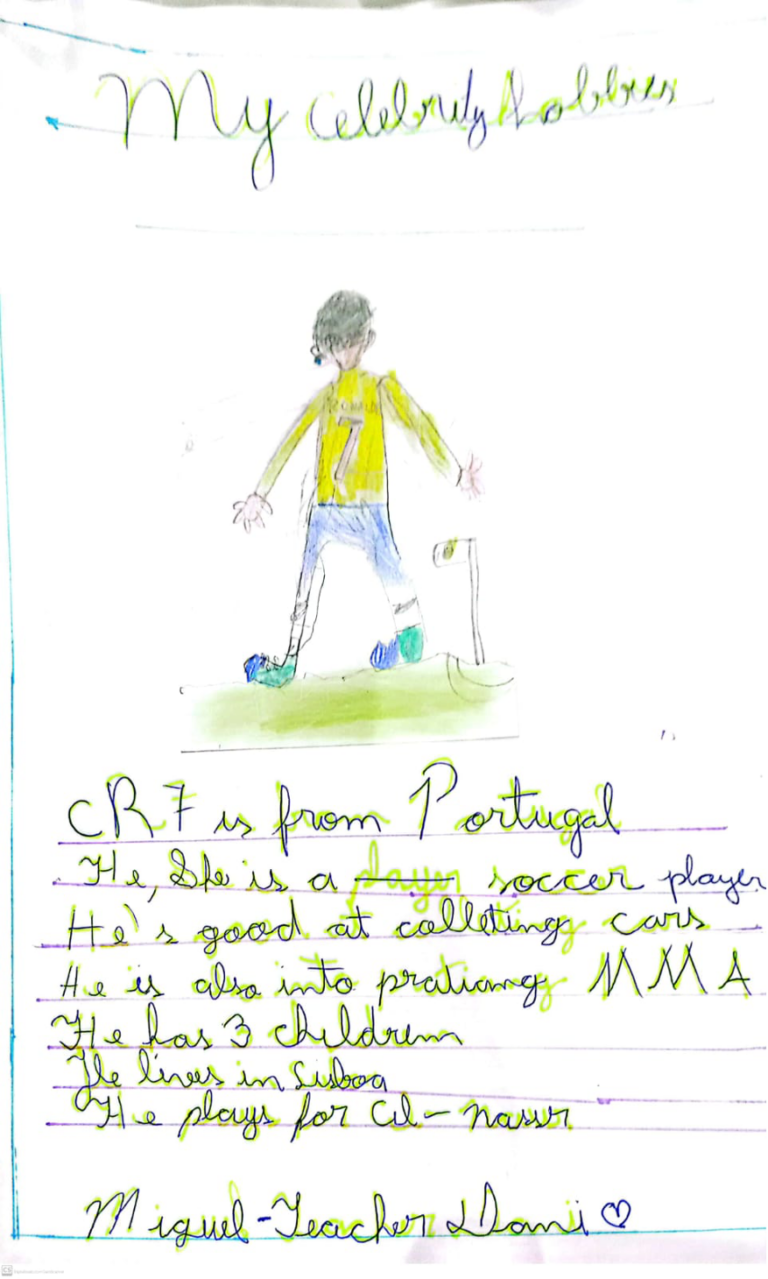 My celebrity hobbies
7
CR7 is from Portugal
He, She is a player soccer player
He's good at colleting cars
He is also into pratiang MMA
He has 3 children
He lives in Lisboa
He plays for Al-nassr
Miguel-Teacher Dani ♡